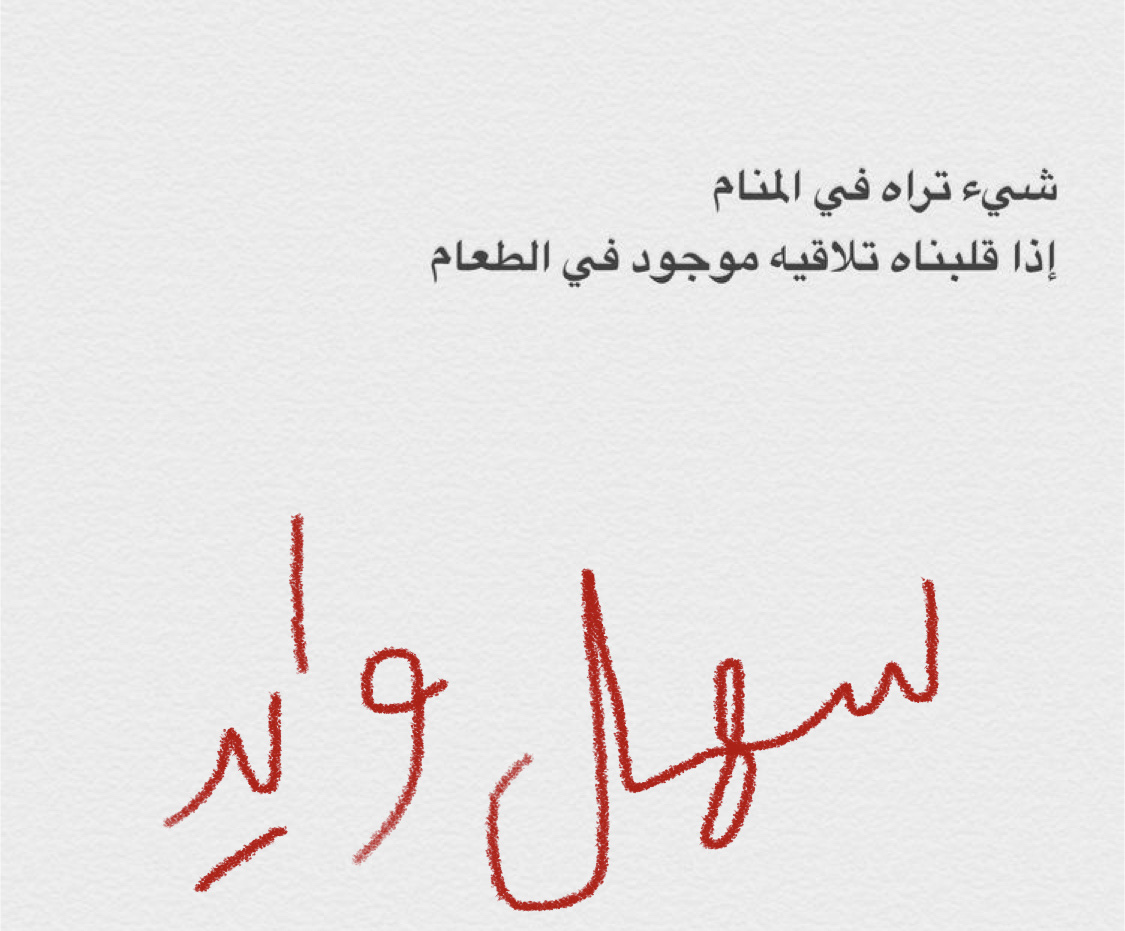 شيء تراه في المنام
إذا قلبناه تلاقيه موجود في الطعام
سهل وايد